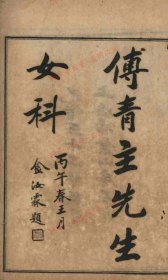 傅青主先生
女科
丙午春王月
金汝霖題